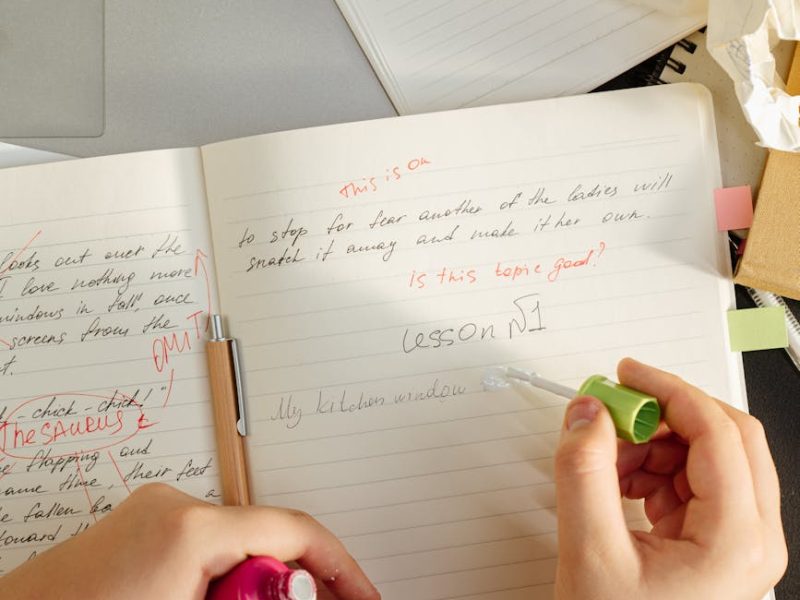 looks out over the
I love nothing more
windows in fall, once
screens from the
OMIT
-chick-chick!"
Thesaurus
flapping and
same time, their feet
fallen
toward the
This is on
to stop for fear another of the ladies will
snatch it away and make it her own.
Is this topic good?
Lesson №1
My kitchen window